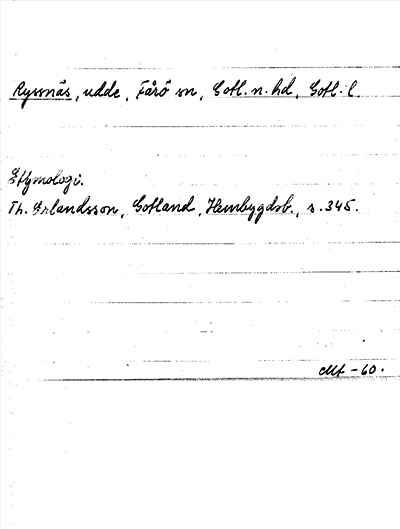 Ryssnäs, udde, Fårö sn, Gotl. n. hd, Gotl. l.
Etymologi.
Th. Erlandsson, Gotland, Hembygdsb., s. 345.
-60.